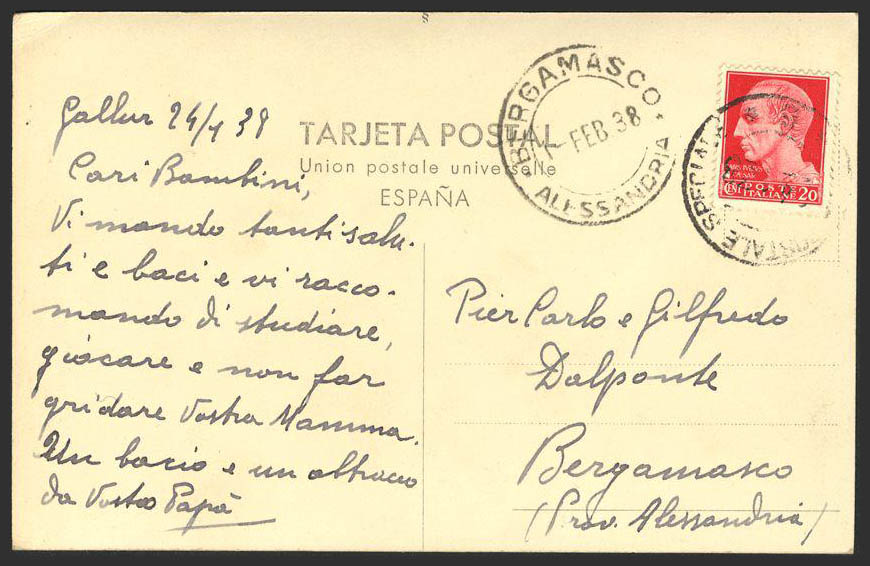 Gallur 24/1 38
Cari Bambini,
Vi mando tanti salu-
ti e baci e vi racco-
mando di studiare,
giocare e non far
gridare Vostra Mamma.
Un bacio e un abbraccio
da Vostro Papà
TARJETA POSTAL
Union postale universelle
ESPAÑA
BERGAMASCO
1- FEB 38
ALESSANDRIA
POSTE
ITALIANE 20
POSTALE SPECIALE
Pier Carlo e Gilfredo
Dalponte
Bergamasco
(Prov. Alessandria)